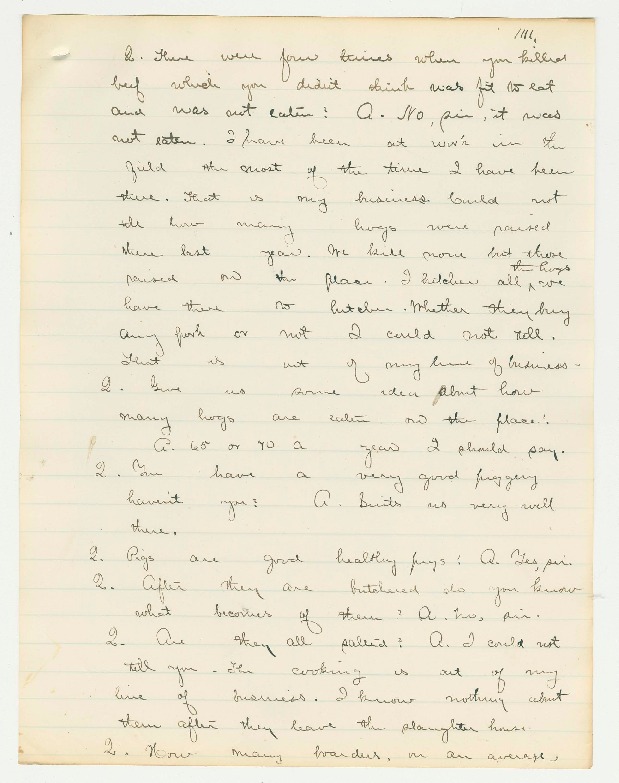 Q. There were four times when you killed
beef which you didn't think was fit to eat
and was not eaten? A. No, sir, it was
not eaten. I have been at work in the
field the most of the time I have been
there. That is my business. Could not
tell how many hogs were raised
there last year. We kill none but those
the hogs
raised on the place. I butcher all we
have there to butcher. Whether they buy
any pork or not I could not tell.
That is out of my line of business.
Q. Give us some idea about how
many hogs are eaten on the place?
A. 65 or 70 a year I should say.
Q. You have a very good piggery
haven't you? A. Suits us very well
there.
Q. Pigs are good healthy pigs? A. Yes, sir.
Q. After they are butchered do you know
what becomes of them? A. No, sir.
Q. Are they all salted? A. I could not
tell you. The cooking is out of my
line of business. I know nothing about
them after they leave the slaughter house.
Q. How many boarders, on an average,